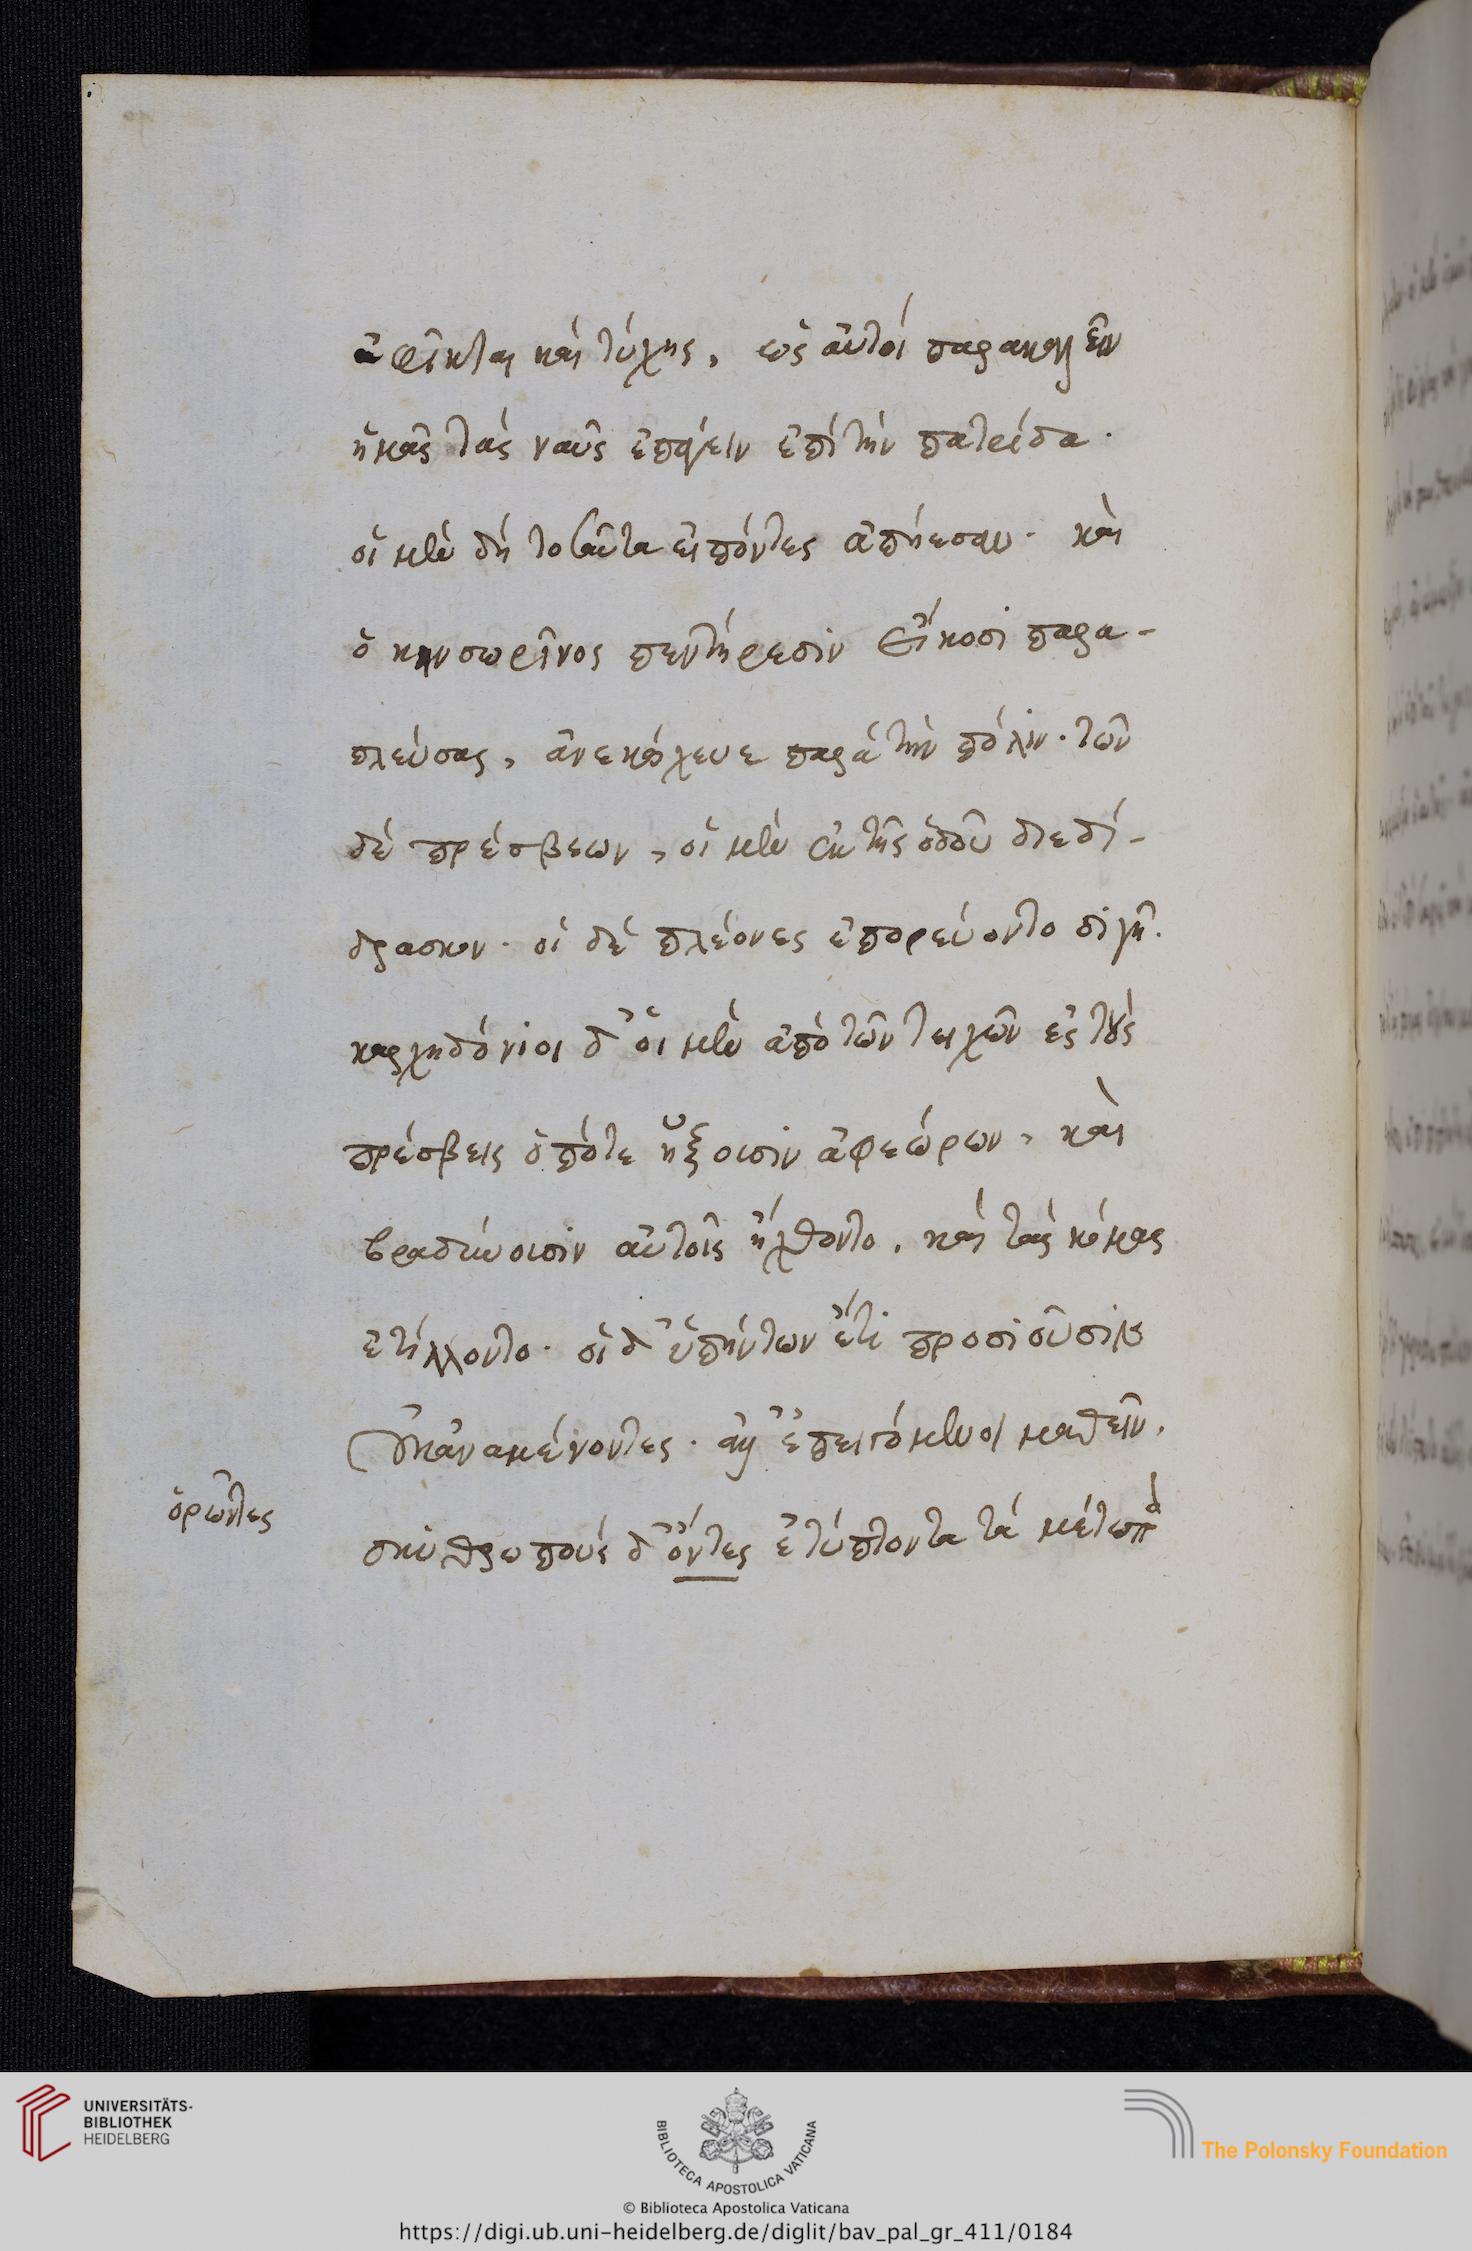 ἀφῖκται καὶ τύχης, ὡς αὐτοὶ παρακαλεῖν
ἡμᾶς τὰς ναῦς ἐπάγειν ἐπὶ τὴν πατρίδα.
οἱ μὲν δὴ τοσαῦτα εἰπόντες ἀπῄεσαν. καὶ
ὁ κηνσωρῖνος πεντήρεσιν εἴκοσι παρα-
πλεύσας, ἀνεκώχευε παρὰ τὴν πόλιν. τῶν
δὲ πρέσβεων, οἱ μὲν ἐκ τῆς ὁδοῦ διεδί-
δρασκον. οἱ δὲ πλέονες ἐπορεύοντο σιγῇ.
καρχηδόνιοι δ' οἱ μὲν ἀπὸ τῶν τειχῶν ἐς τοὺς
πρέσβεις ὁπότε ἥξουσιν ἀφεώρων, καὶ
βραδύνουσιν αὐτοῖς ἤχθοντο, καὶ τὰς κόμας
ἐτίλλοντο. οἱ δ' ὑπήντων ἔτι προσιοῦσιν
οὐκ ἀναμένοντες. ἀλλ' ἐπειγόμενοι μαθεῖν.
σκυθρωποὺς δ' ὄντες ἐτύπτοντο τὰ μέτωπα
ὁρῶντες
UNIVERSITÄTS-
BIBLIOTHEK
HEIDELBERG
BIBLIOTECA APOSTOLICA VATICANA
The Polonsky Foundation
© Biblioteca Apostolica Vaticana
https://digi.ub.uni-heidelberg.de/diglit/bav_pal_gr_411/0184